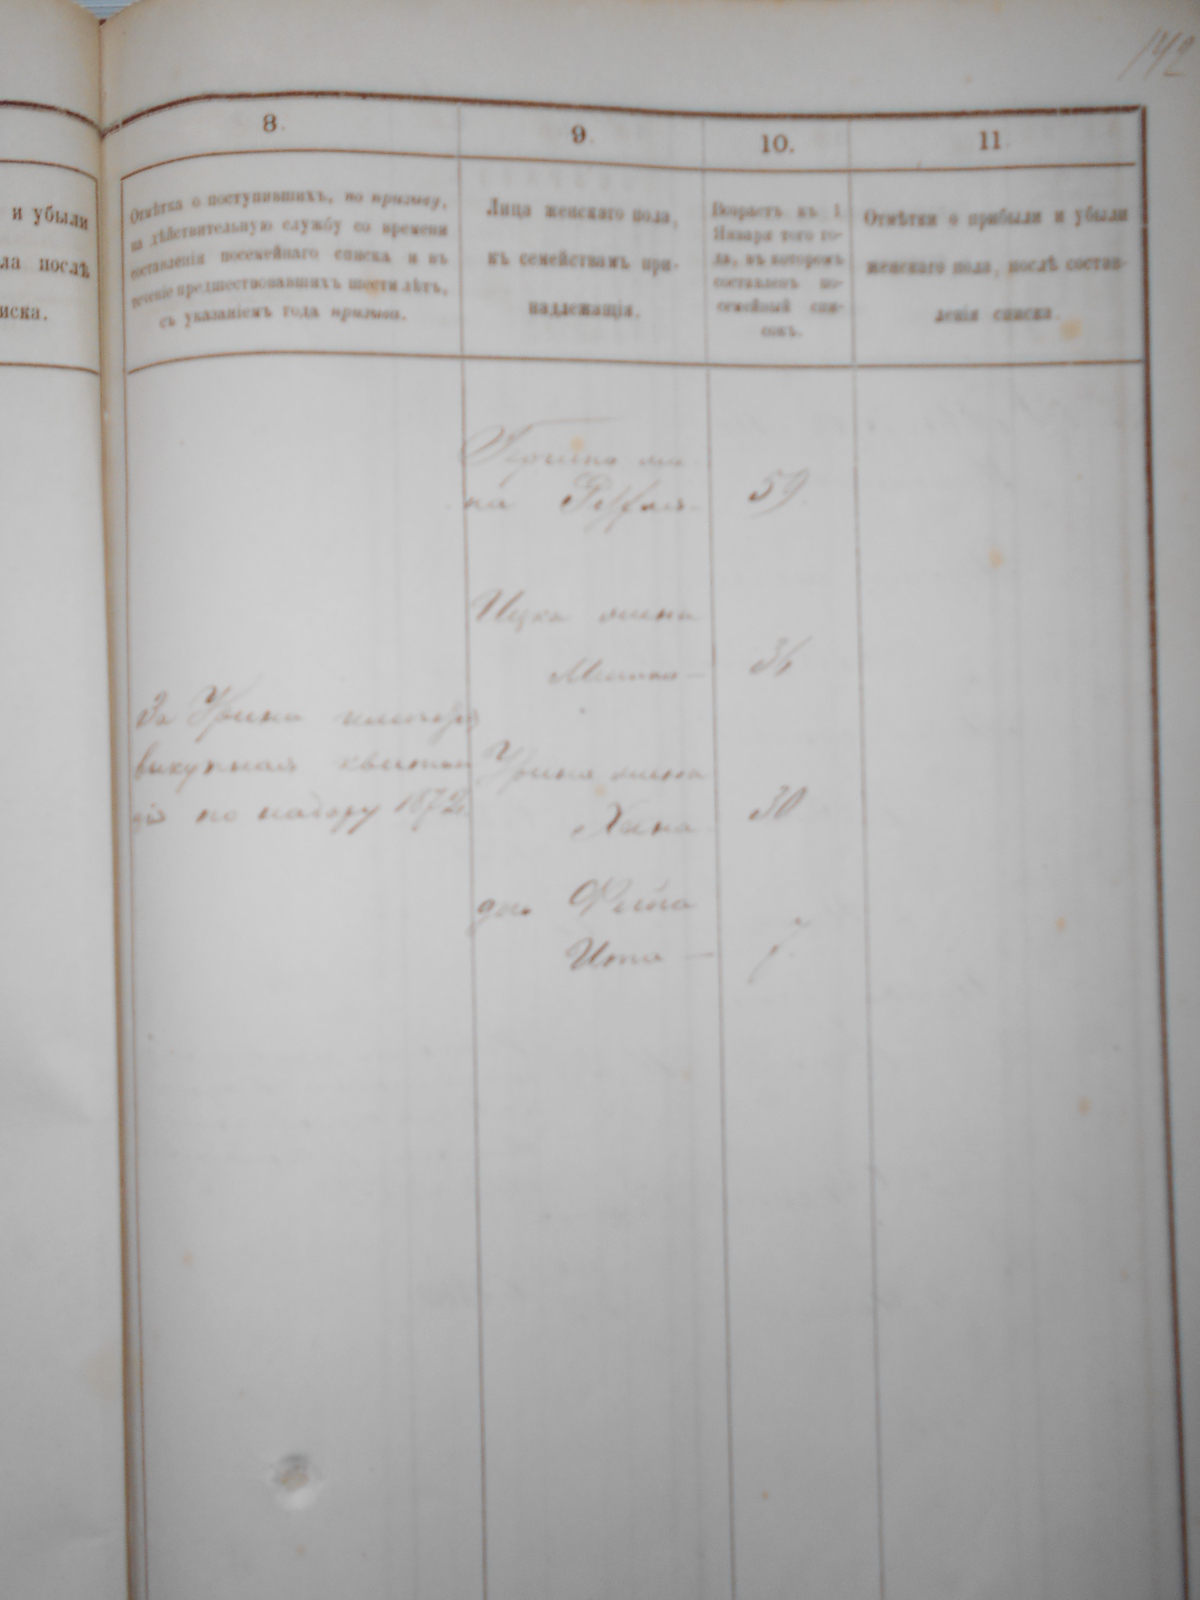 142
и убыли
ла послѣ
иска.
8.
Отмѣтка о поступившихъ, по призыву,
на дѣйствительную службу со времени
составленія посемейнаго списка и въ
теченіе предшествовавшихъ шести лѣтъ,
съ указаніемъ года призыва.
9.
Лица женскаго пола,
къ семействамъ при-
надлежащія.
10.
Возрастъ къ 1
Января того го-
да, въ которомъ
составленъ по-
семейный спи-
сокъ.
11
Отмѣтки о прибыли и убыли
женскаго пола, послѣ состав-
ленія списка.
на
59
Ицка жена
36
За
выкупная
по набору 1872
жена
Хана
30
Фейга
7.